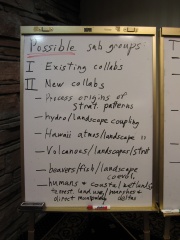 Possible sub groups
I Existing collabs
II New collabs
– Process origins of
strat. patterns
– hydro/landscape coupling
– Hawaii atmos/landscape
– Volcanoes/landscapes/strat
– beavers/fish/landscape
coevol.
– humans + coastal/wetlands
terrest. land use/
direct manipulation deltas
T